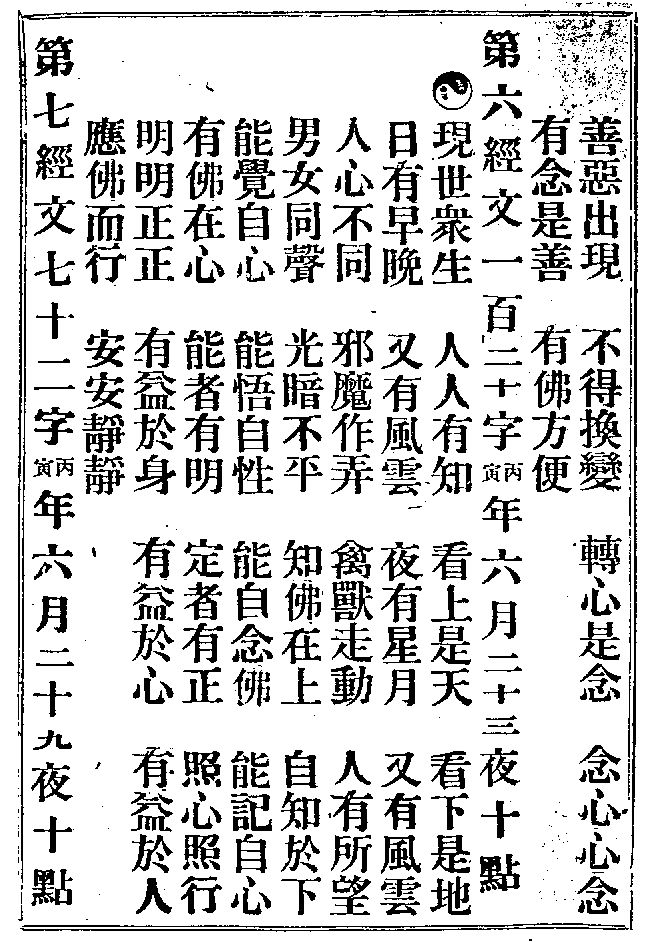 善惡出現 不得換變 轉心是念 念心心念
有念是善 有佛方便
第六經文一百二十字丙寅年六月二十三夜十點
現世衆生 人人有知 看上是天 看下是地
日有早晚 又有風雲 夜有星月 又有風雲
人心不同 邪魔作弄 禽獸走動 人有所望
男女同聲 光暗不平 知佛在上 自知於下
能覺自心 能悟自性 能自念佛 能記自心
有佛在心 能者有明 定者有正 照心照行
明明正正 有益於身 有益於心 有益於人
應佛而行 安安靜靜
第七經文七十二字丙寅年六月二十九夜十點